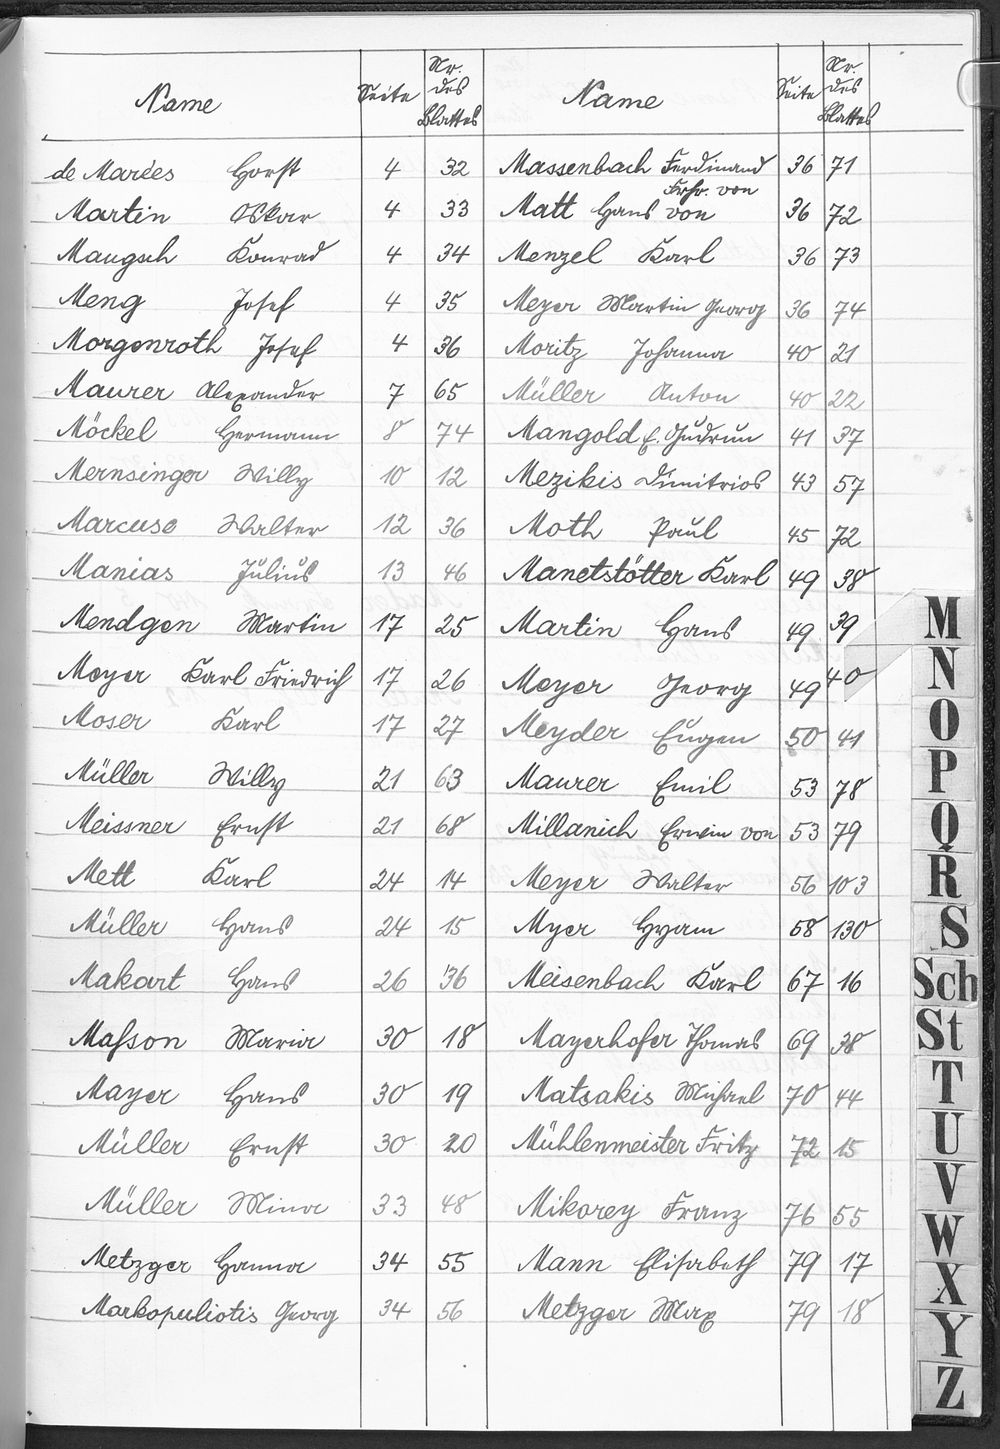 Name Seite Nr. des Blattes Name Seite Nr. des Blattes
de Marées Horst 4 32
Martin Oskar 4 33
Maugsch Konrad 4 34
Meng Josef 4 35
Morgenroth Josef 4 36
Maurer Alexander 7 65
Möckel Hermann 8 74
Mernsinger Willy 10 12
Marcuse Walter 12 36
Manias Julius 13 46
Mendgen Martin 17 25
Meyer Karl Friedrich 17 26
Moser Karl 17 27
Müller Willy 21 63
Meissner Ernst 21 68
Mett Karl 24 14
Müller Hans 24 15
Makart Hans 26 36
Maſson Maria 30 18
Mayer Hans 30 19
Müller Ernst 30 20
Müller Minna 33 48
Metzger Hanna 34 55
Markopuliotis Georg 34 56
Massenbach Ferdinand Frhr. von 36 71
Matt Hans von 36 72
Menzel Karl 36 73
Meyer Martin Georg 36 74
Moritz Johanna 40 21
Müller Anton 40 22
Mangold E. Gudrun 41 37
Mezikis Dimitrios 43 57
Moth Paul 45 72
Manetstötter Karl 49 38
Martin Hans 49 39
Meyer Georg 49 40
Meyder Eugen 50 41
Maurer Emil 53 78
Millanich Erwin von 53 79
Meyer Walter 56 103
Myer Hyam 58 130
Meisenbach Karl 67 16
Mayerhofer Thomas 69 38
Matsakis Michael 70 44
Mühlenmeister Fritz 72 15
Mikorey Franz 76 55
Mann Elisabeth 79 17
Metzger Max 79 18
M
N
O
P
Q
R
S
Sch
St
T
U
V
W
X
Y
Z